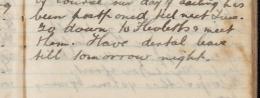 of course our day of sailing has
been postponed till next Tues.
Go down to & meet
them. Have dental leave
till tomorrow night.